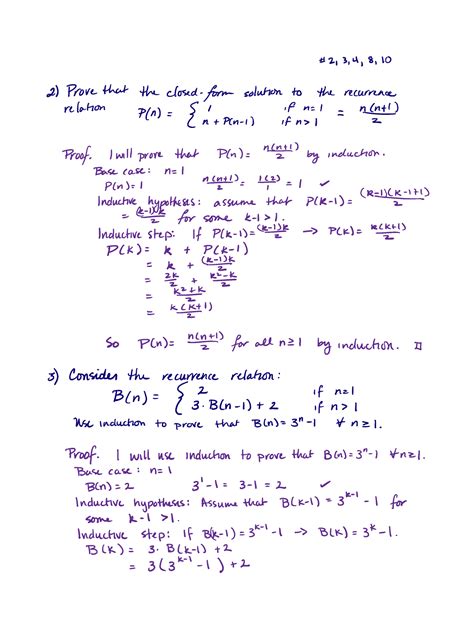 #2,3,4,8,10
2) Prove that the closed-form solution to the recurrence
relation P(n) = { 1 if n=1 = n(n+1)/2
n + P(n-1) if n>1
Proof. I will prove that P(n)= n(n+1)/2 by induction.
Base case: n=1
P(n)=1 n(n+1)/2 = 1(2)/2 = 1 ✓
Inductive hypotheses: assume that P(k-1) = (k-1)(k-1+1)/2
= (k-1)k/2 for some k-1>1.
Inductive step: If P(k-1)= (k-1)k/2 → P(k)= k(k+1)/2
P(k)= k + P(k-1)
= k + (k-1)k/2
= 2k/2 + k²-k/2
= k²+k/2
= k(k+1)/2
So P(n)= n(n+1)/2 for all n≥1 by induction. □
3) Consider the recurrence relation:
B(n) = { 2 if n=1
3·B(n-1) + 2 if n>1
Use induction to prove that B(n)=3ⁿ-1 ∀ n≥1.
Proof. I will use induction to prove that B(n)=3ⁿ-1 ∀n≥1.
Base case: n=1
B(n)=2 3¹-1 = 3-1 = 2 ✓
Inductive hypothesis: Assume that B(k-1) = 3^(k-1) - 1 for
some k-1>1.
Inductive step: if B(k-1)=3^(k-1)-1 → B(k)=3^k-1.
B(k)= 3·B(k-1)+2
= 3(3^(k-1)-1)+2